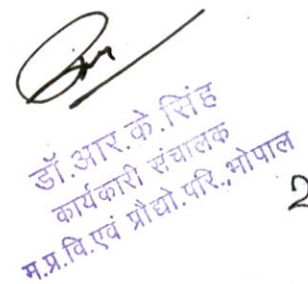 डॉ.आर.के.सिंह
कार्यकारी संचालक
म.प्र.वि.एवं प्रौद्यो.परि.,भोपाल
2